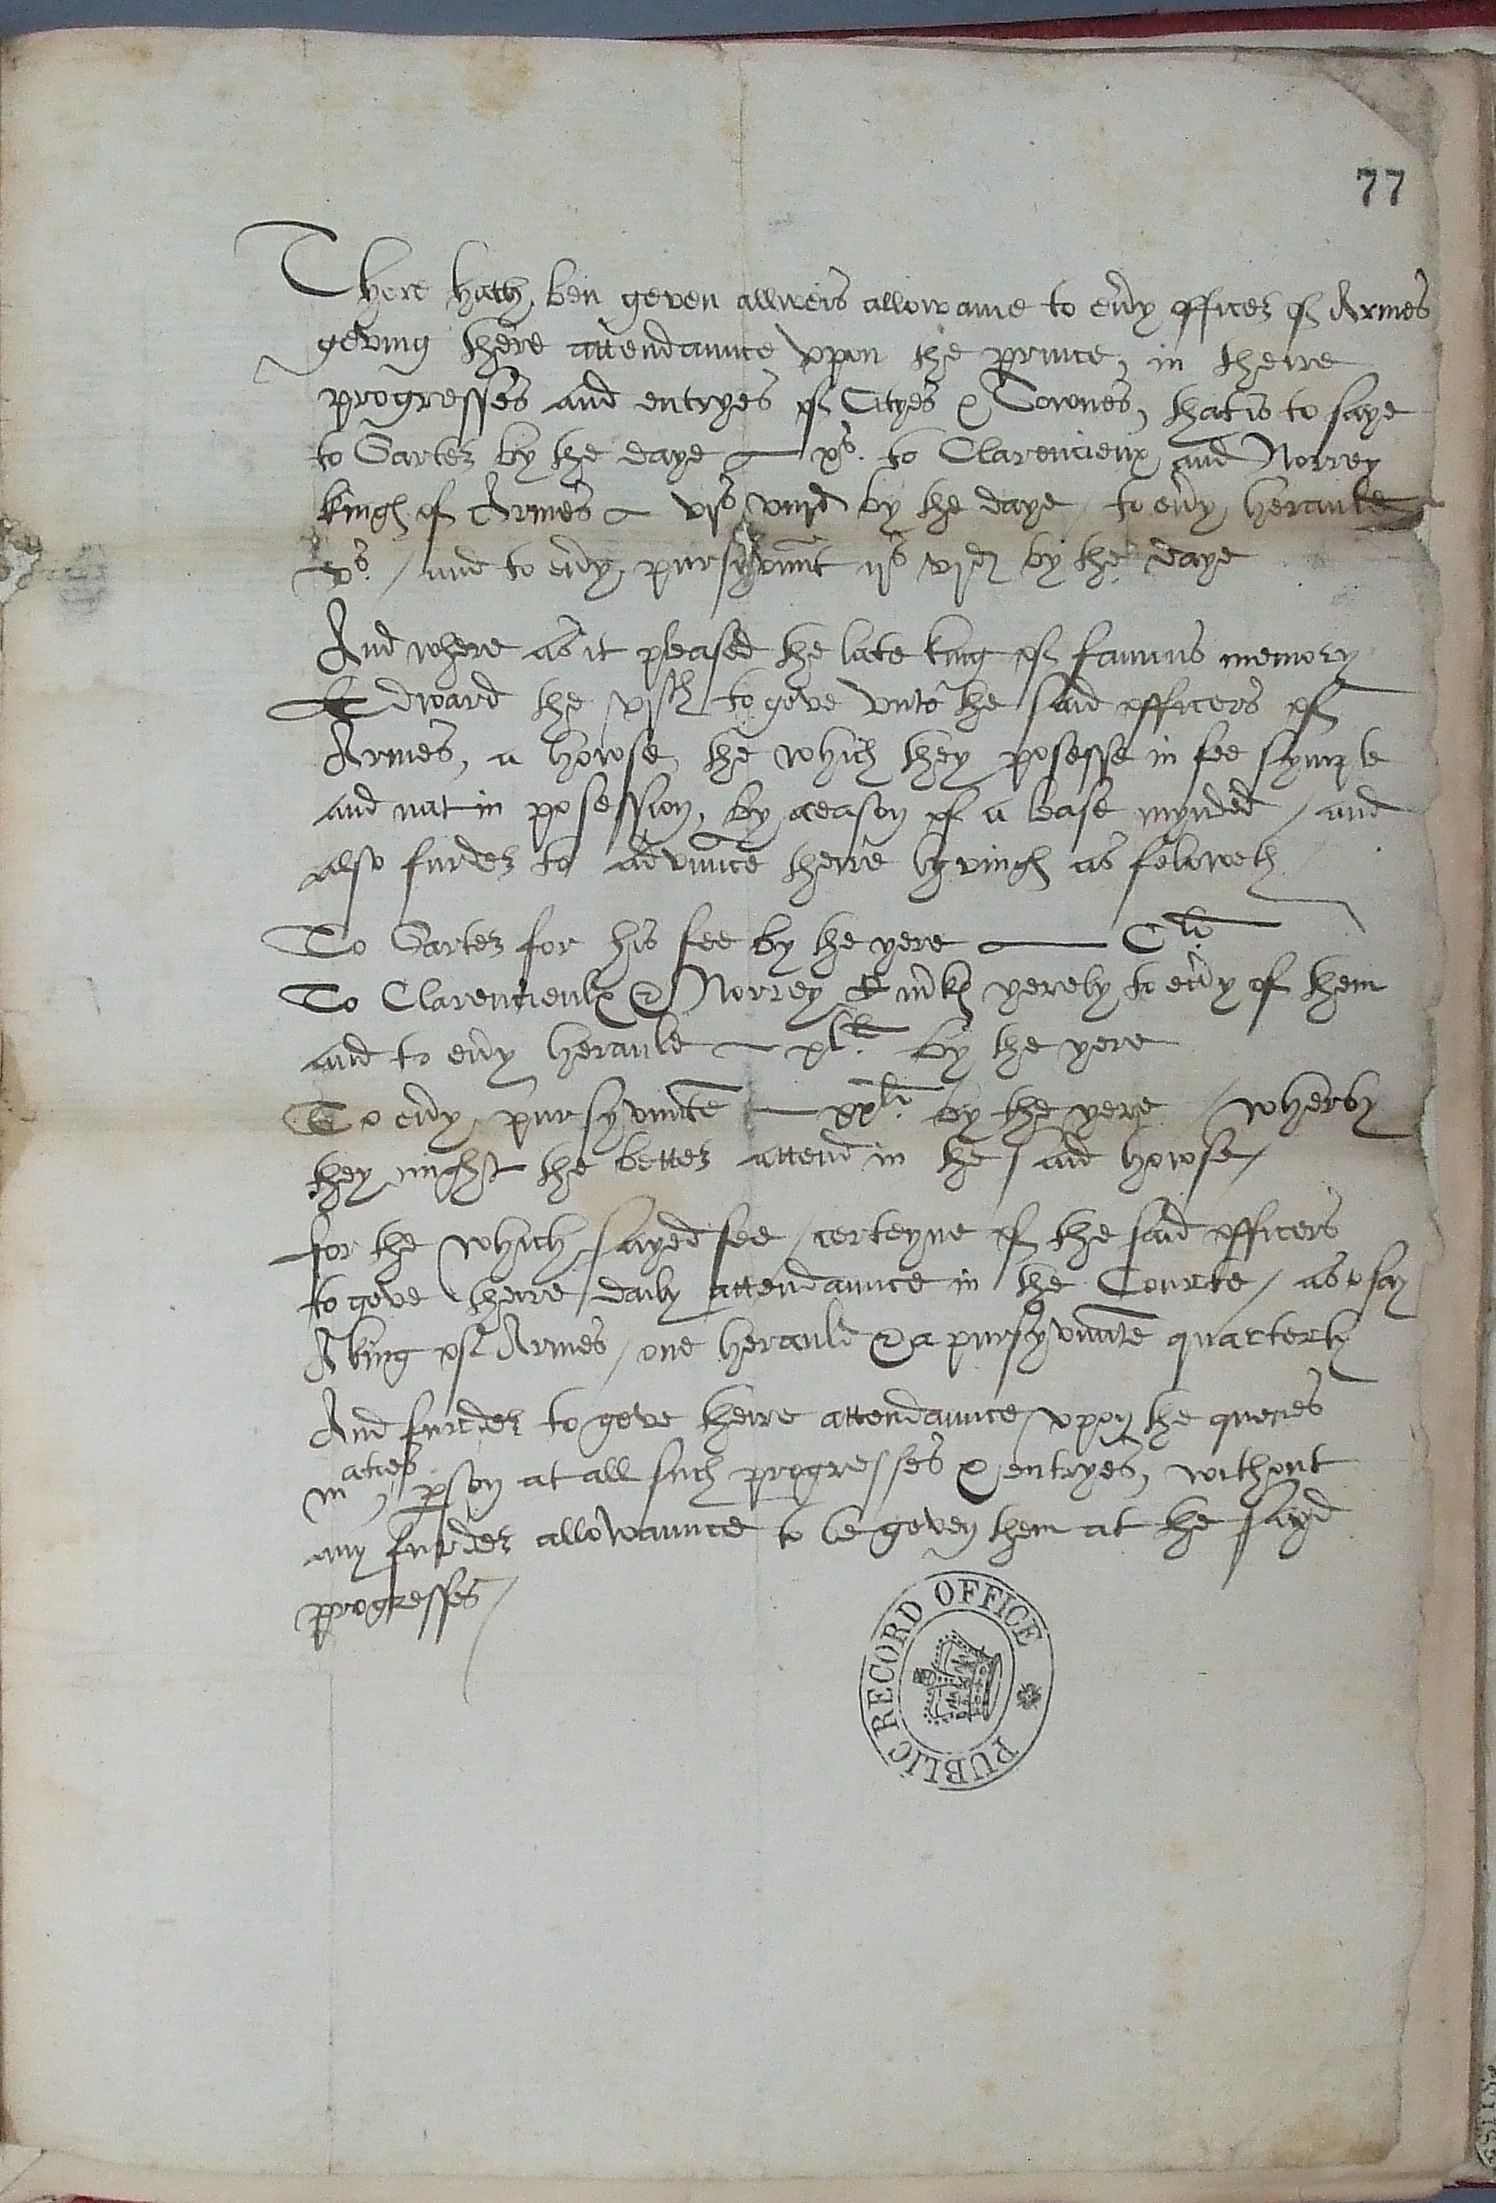 77
There hath ben geven allweis allowance to eùy officer of Armes
geving there attendaunce vpon the prince, in theire
progresses and entryes of Cityes & Townes, that is to saye
to Garter by the daye — xs. to Clarencieux and Norrey
kings of Armes — vis viijd by the daye / to eùy heraulte
vs. / and to eùy pursyvaunt ijs vjd by the daye
And where as it pleased the late king of famous memory
Edward the vjth to geve vnto the said officers of
Armes, a howse, the which they posesse in fee symple
and nat in posession, by reason of a lease / and
also furder to advaunce theire lyvings as foloweth
To Garter for his fee by the yere — Cli.
To Clarencieulx & Norrey C mks yerely to eùy of them
and to eùy herauld — xlli. by the yere
To eùy pursyvaunte — xxli. by the yere / wherby
they might the better attend in the said howse /
for the which sayed fee / certeyne of the said officers
to geve theire daily attendaunce in the Courte / as to say
A king of Armes / one herauld & a pursyvaunte quarterly
And furder to geve theire attendaunce vpon the quenes
maties pson at all such progresses & entryes, without
any furder allowaunce to be geven them at the sayd
progresses /
PUBLIC RECORD OFFICE